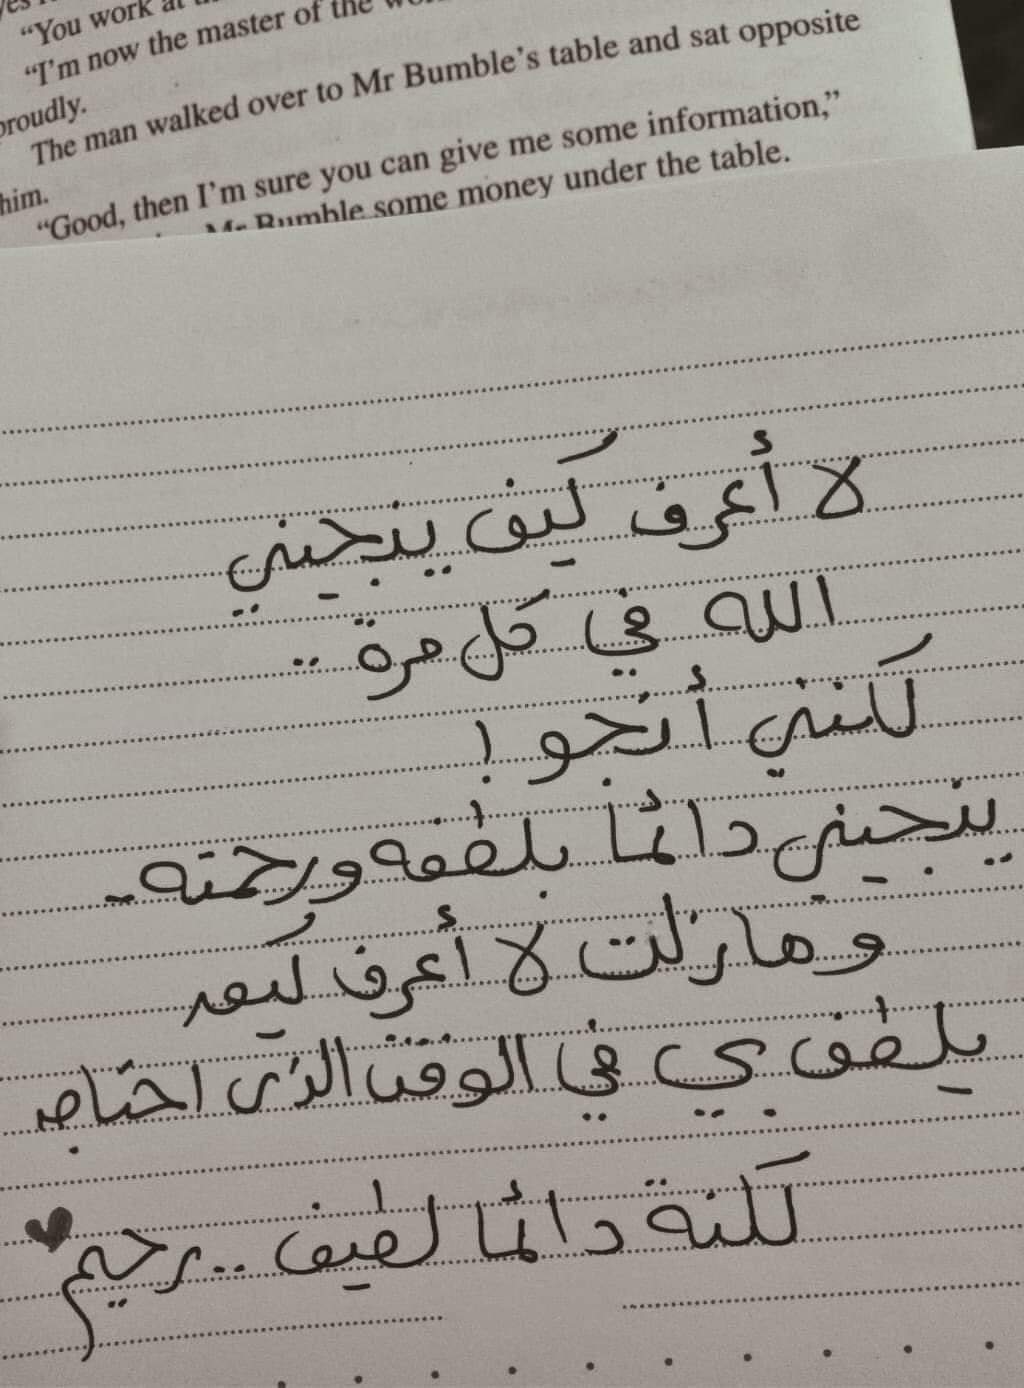 "You work at
"I'm now the master of the
proudly.
The man walked over to Mr Bumble's table and sat opposite
him.
"Good, then I'm sure you can give me some information,"
Mr Bumble some money under the table.
لا أعرف كيف ينجيني
الله في كل مرة ..
لكنني أنجو !
ينجيني دائما بلطفه ورحمته ..
و مازلت لا أعرف كيف
يلطف بي في الوقت الذي احتاج
لكنة دائما لطيف .. رحيم ♥